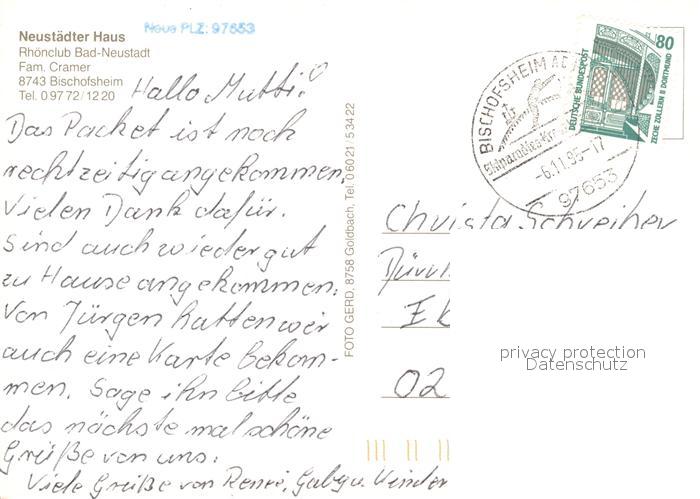 Neue PLZ: 97653
Neustädter Haus
Rhönclub Bad-Neustadt
Fam. Cramer
8743 Bischofsheim
Tel. 0 97 72 / 12 20
Hallo Mutti!
Das Packet ist noch
rechtzeitig angekommen.
Vielen Dank dafür.
Sind auch wieder gut
zu Hause angekommen.
Von Jürgen hatten wir
auch eine Karte bekom-
men. Sage ihn bitte
das nächste mal schöne
Grüße von uns.
Viele Grüße von Renè, Gaby u. Kinder
FOTO GERD, 8758 Goldbach, Tel. 0 60 21 / 5 34 22
BISCHOFSHEIM A D
-6.11.95-17
97653
DEUTSCHE BUNDESPOST
80
ZECHE ZOLLERN II DORTMUND
Christa Schreiber
02
privacy protection
Datenschutz